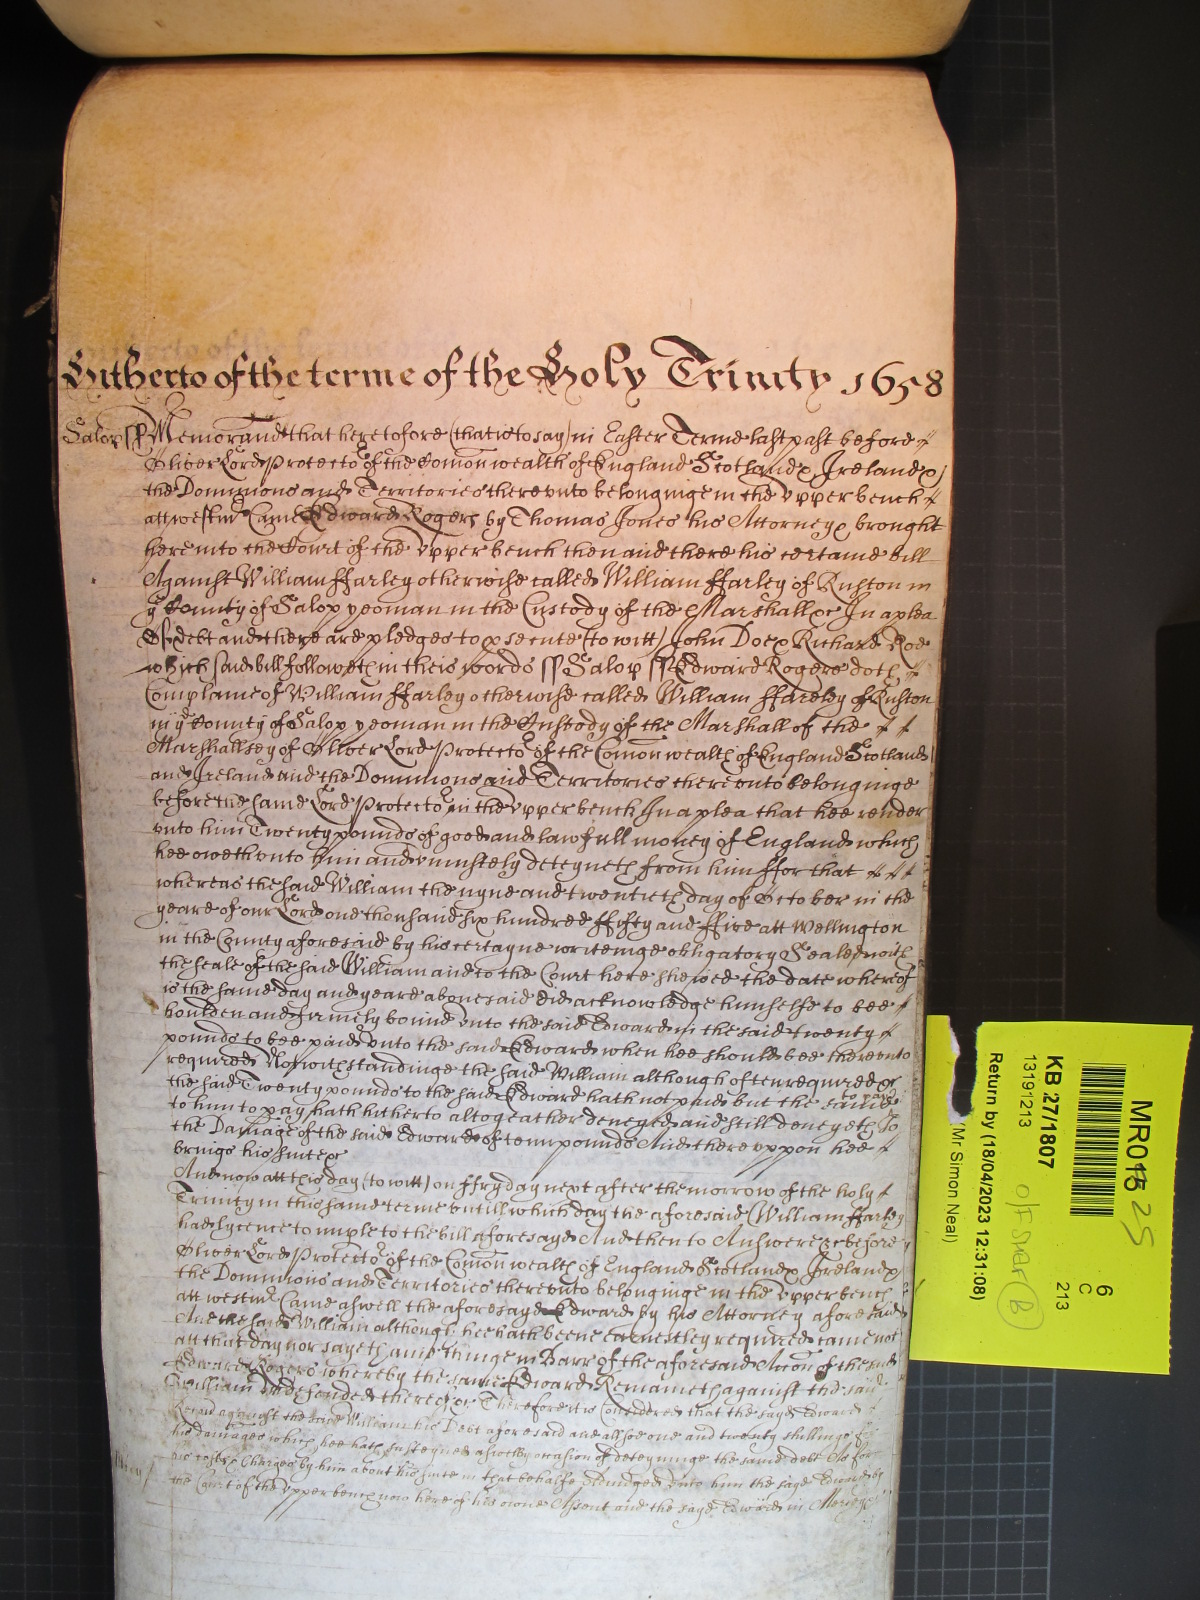 Hitherto of the terme of the Holy Trinity 1658
Salop ss Memorand that heretofore (that is to say) in Easter Terme last past before
Oliver Lord Protector of the Comon wealth of England Scotland & Ireland &
the Dominions and Territories thereunto belonginge in the upper bench
att westm Came Edward Rogers by Thomas Jones his Attorney & brought
here into the Court of the upper bench then and there his certaine bill
Against William ffarley otherwise called William ffarley of Ruston in
ye County of Salop yeoman in the Custody of the Marshall &c In a plea
Of debt and there are pledges to psecute (to witt) John Doe & Richard Roe
which said bill followeth in theis words ss Salop ss Edward Rogers doth
Complaine of William ffarley otherwise called William ffarley of Ruston
in ye County of Salop yeoman in the Custody of the Marshall of the
Marshallsey of Oliver Lord Protector of the Comon wealth of England Scotland
and Ireland and the Dominions and Territories thereunto belonginge
before the same Lord Protector in the upper bench In a plea that hee render
unto him Twenty pounds of good and lawfull money of England which
hee oweth unto him and uniustely deteyneth from him ffor that
whereas the said William the nyne and twentieth day of October in the
yeare of our Lord one thousand six hundred ffifty and ffive att Wellington
in the County aforesaid by his certayne writeinge obligatory Sealed with
the seale of the said William and to the Court here shewed the date whereof
is the same day and yeare abovesaid did acknowledge himselfe to bee
houlden and firmely bound unto the said Edward in the said twenty
pounds to bee paid unto the said Edward when hee should bee thereunto
required Notwithstandinge the said William although often required &c
the said Twenty pounds to the said Edward hath not paid but the same
to him to pay hath hitherto altogeather denyed and still denyeth To
the Damage of the said Edward of tenn pounds And thereuppon hee
brings his suite &c
And now att this day (to witt) on ffryday next after the morrow of the holy
Trinity in this same terme untill which day the aforesaid William ffarley
had lycence to imple to the bill aforesayd And then to Answere &c before
Oliver Lord Protector of the Comon wealth of England Scotland & Ireland &
the Dominions and Territories thereunto belonginge in the upper bench
att westm Came aswell the aforesayd Edward by his Attorney aforesaid
And the said William although hee hath beene earnestley required came not
att that day nor sayeth any thinge in Barr of the aforesaid Accon of the said
Edward Rogers whereby the same Edward Remaineth against the said
William undefended therein &c Therefore it is Considered that the sayd Edward
Recover against the said William his Debt aforesaid and allsoe one and twenty shillings
his damages which hee hath susteyned aswell by occasion of deteyninge the same debt As for
his costs & Charges by him about his suite in that behalfe adiudged unto him the sayd Edward by
the Court of the upper bench now here of his owne Assent and the sayd Edward in Mercy &c
MR015
25
6
C
213
KB 27/1807
13191213
Return by (18/04/2023 12:31:08)
(Mr Simon Neal)